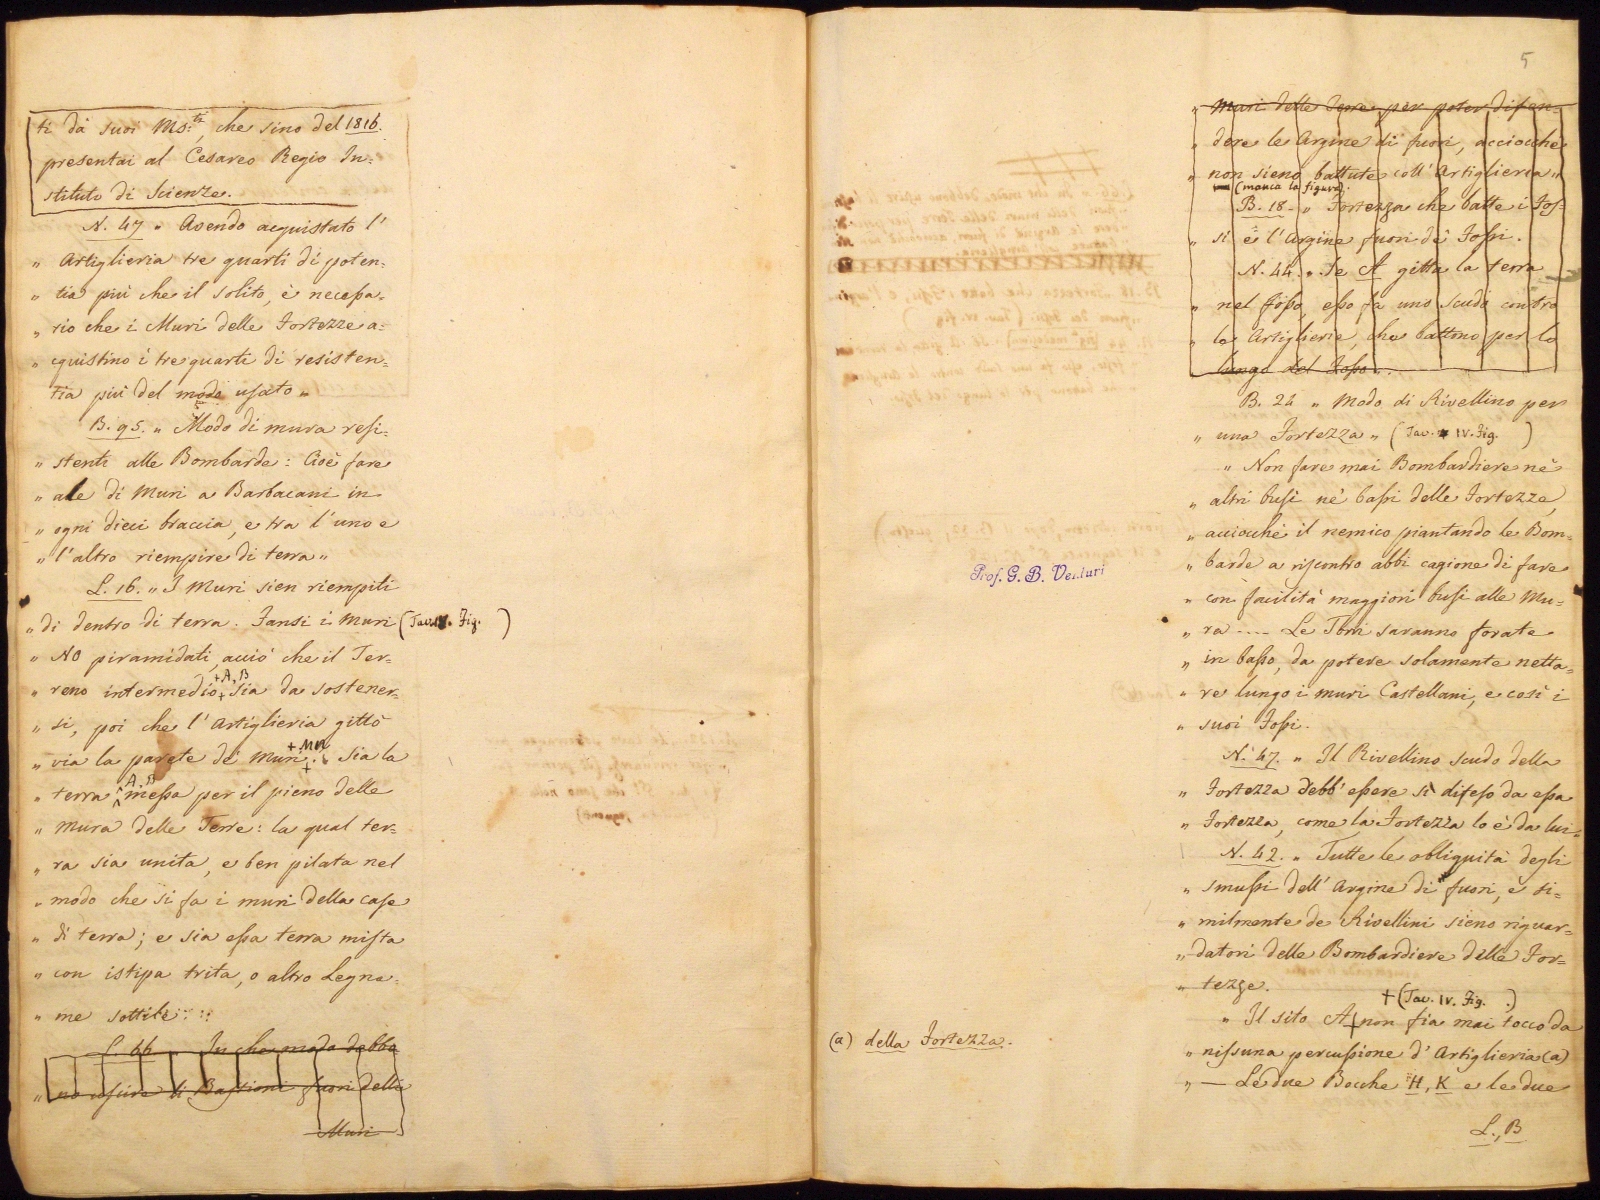 ti dà suoi Ms.ti, che sino del 1816.
presentai al Cesareo Regio In=
stituto di Scienze.
N. 47 „ Avendo acquistato l'
„ Artiglieria tre quarti di poten=
„ tia più che il solito, è necessa=
„ rio che i Muri delle Fortezze a=
„ cquistino i tre quarti di resisten=
„ tia più del modo usato „
B. 95. „ Modo di mura resi=
„ stenti alle Bombarde: Cioè fare
„ ale di Muri a Barbacani in
„ ogni dieci braccia, e tra l'uno e
„ l'altro riempire di terra „
L. 16. „ I Muri sien riempiti
„ di dentro di terra. Fansi i Muri (Tav. IV. Fig. )
„ NO piramidati, acciò che il Ter=
+ A, B
„ reno intermedio + sia da sostener=
„ si, poi che l'Artiglieria gittò
+ MN
„ via la parete de' Muri. + Sia la
A, B
„ terra messa per il pieno delle
„ mura delle Terre: la qual ter=
„ ra sia unita, e ben pilata nel
„ modo che si fa i muri della case
„ di terra; e sia essa terra mista
„ con istipa trita, o altro Legna=
„ me sottile
L. 66 In che modo debba
„ no uscire li Bastioni fuori delli
Muri
5
„ Muri delle Terre per poter difen=
„ dere le Argine di fuori, acciocchè
„ non sieno battute coll'Artiglieria „
(manca la figura).
B. 18 „ Fortezza che batte i Fos=
„ si e l'Argine fuori de' Fossi.
N. 44. „ Se A gitta la terra
„ nel fosso, esso fa uno scudo contro
„ le Artiglierie, che battono per lo
lungo del Fosso.
B. 24 „ Modo di Rivellino per
„ una Fortezza „ (Tav. IV. Fig. )
„ Non fare mai Bombardiere nè
„ altri busi nè bassi delle Fortezze,
„ acciochè il nemico piantando le Bom=
„ barde a riscontro abbi cagione di fare
„ con facilità maggiori busi alle Mu=
„ ra .... Le Torri saranno forate
„ in basso, da potere solamente netta=
„ re lungo i muri Castellani, e così i
„ suoi Fossi.
N. 47. „ Il Rivellino scudo della
„ Fortezza debb'essere sì difeso da essa
„ Fortezza, come la Fortezza lo è da lui.
N. 42. „ Tutte le obliquità degli
„ smussi dell'Argine di fuori, e si=
„ milmente de Rivellini sieno riguar=
„ datori delle Bombardiere delle For=
„ tezze.
+ (Tav. IV. Fig. .)
„ Il sito A + non fia mai tocco da
„ nissuna percussione d'Artiglieria (a)
„ — Le due Bocche H, K e le due
L., B
Prof. G. B. Venturi
(a) della Fortezza.